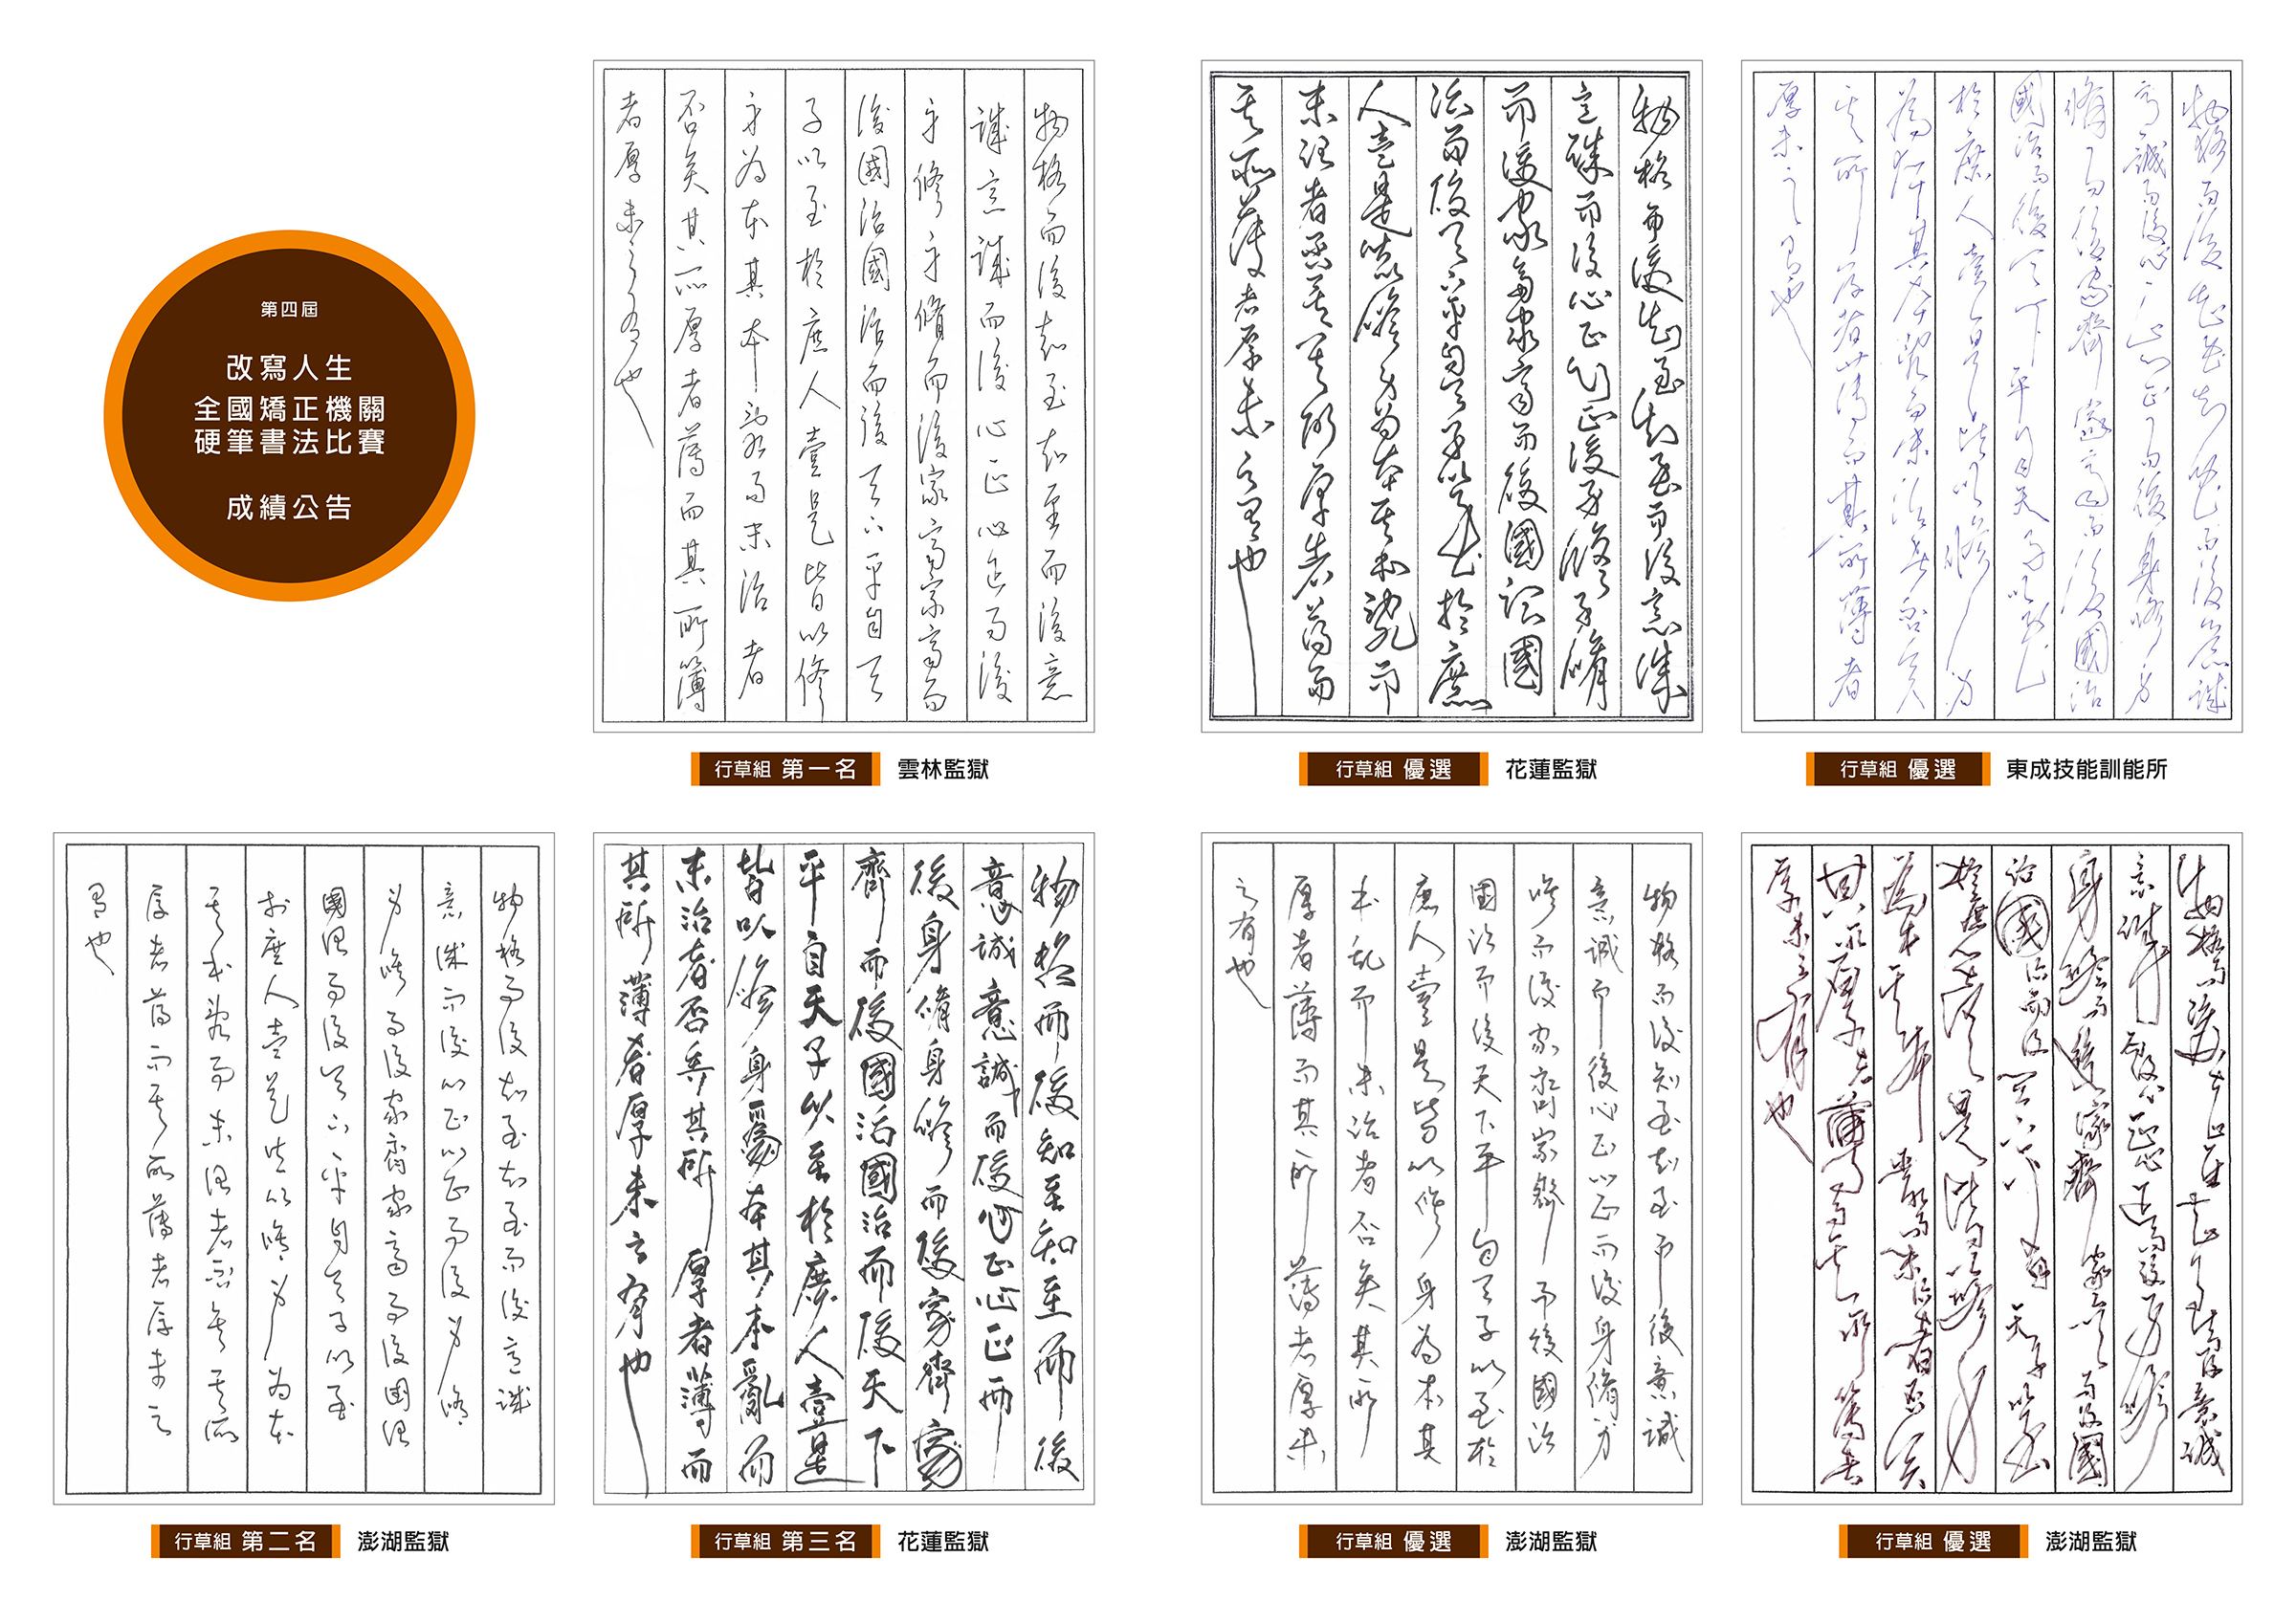 第四屆
改寫人生
全國矯正機關
硬筆書法比賽
成績公告
物格而後知至知至而後意
誠意誠而後心正心正而後
身修身脩而後家齊家齊而
後國治國治而後天下平自天
子以至於庶人壹是皆以修
身為本其本亂而末治者
否矣其所厚者薄而其所薄
者厚未之有也
行草組 第一名 雲林監獄
物格而後知至知至而後意誠
意誠而後心正心正後身修身脩
而後家齊家齊而後國治國
治而後天下平自天子以至於庶
人壹是皆以修身為本其本亂而
末治者否矣其所厚者薄而
其所薄者厚未之有也
行草組 優選 花蓮監獄
物格而後知至知至而後意誠
意誠而後心正心正而後身修身
脩而後家齊家齊而後國治
國治而後天下平自天子以至
於庶人壹是皆以修身
為本其本亂而末治者否矣
其所厚者薄而其所薄者
厚未之有也
行草組 優選 東成技能訓能所
物格而後知至知至而後意誠
意誠而後心正心正而後身修
身脩而後家齊家齊而後國治
國治而後天下平自天子以至
於庶人壹是皆以脩身為本
其本亂而末治者否矣其所
厚者薄而其所薄者厚未之
有也
行草組 第二名 澎湖監獄
物格而後知至知至而後
意誠意誠而後心正心正而
後身脩身修而後家齊家
齊而後國治國治而後天下
平自天子以至於庶人壹是
皆以修身為本其本亂而
末治者否矣其所厚者薄而
其所薄者厚未之有也
行草組 第三名 花蓮監獄
物格而後知至知至而後意誠
意誠而後心正心正而後身脩身
修而後家齊家齊而後國治
國治而後天下平自天子以至於
庶人壹是皆以修身為本其
本亂而末治者否矣其所
厚者薄而其所薄者厚未
之有也
行草組 優選 澎湖監獄
物格而後知至知至而後意誠
意誠而後心正心正而後身修
身修而後家齊家齊而後國
治國治而後天下平自天子以至
於庶人壹是皆以修身
為本其本亂而末治者否矣
其所厚者薄而其所薄者
厚未之有也
行草組 優選 澎湖監獄